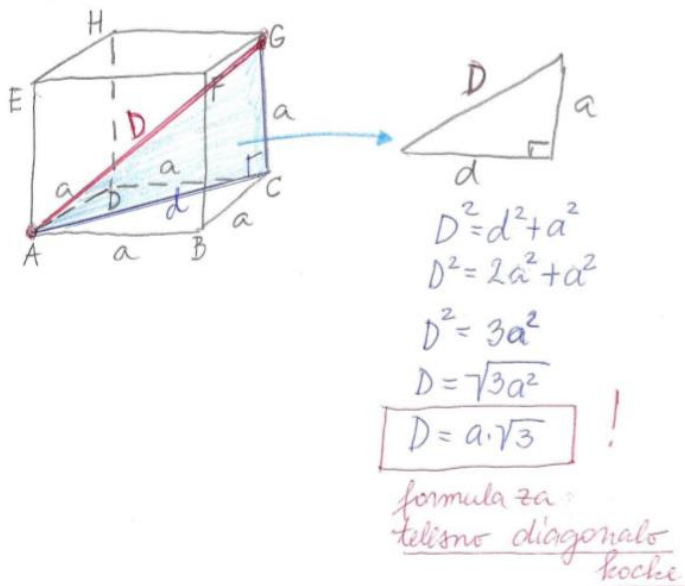 H
G
E
F
D
a
a
a
D
d
C
a
A
a
B
D
a
d
D² = d² + a²
D² = 2a² + a²
D² = 3a²
D = √3a²
D = a·√3
!
formula za
telesno diagonalo
kocke